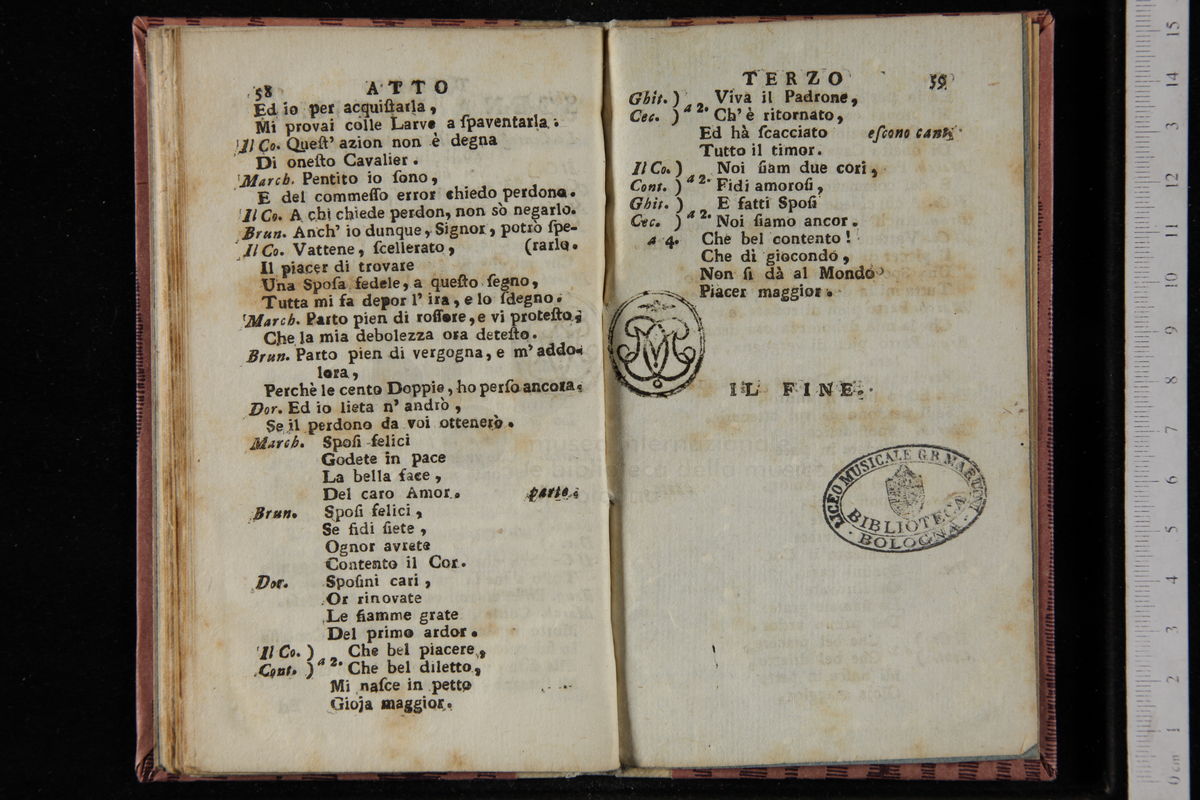 58 ATTO
Ed io per acquiſtarla,
Mi provai colle Larve a ſpaventarla.
Il Co. Queſt' azion non è degna
Di oneſto Cavalier.
March. Pentito io ſono,
E del commeſſo error chiedo perdono.
Il Co. A chi chiede perdon, non sò negarlo.
Brun. Anch' io dunque, Signor, potrò ſpe-
Il Co. Vattene, ſcellerato, (rarlo.
Il piacer di trovare
Una Spoſa fedele, a queſto ſegno,
Tutta mi fa depor l' ira, e lo ſdegno.
March. Parto pien di roſſore, e vi proteſto,
Che la mia debolezza ora deteſto.
Brun. Parto pien di vergogna, e m' addo-
lora,
Perchè le cento Doppie, ho perſo ancora.
Dor. Ed io lieta n' andrò,
Se il perdono da voi ottenerò.
March. Spoſi felici
Godete in pace
La bella face,
Del caro Amor. parte.
Brun. Spoſi felici,
Se fidi ſiete,
Ognor avrete
Contento il Cor.
Dor. Spoſini cari,
Or rinovate
Le fiamme grate
Del primo ardor.
Il Co. ) a 2. Che bel piacere,
Cont. ) Che bel diletto,
Mi naſce in petto
Gioja maggior.
TERZO 59
Ghit. ) a 2. Viva il Padrone,
Cec. ) Ch' è ritornato,
Ed hà ſcacciato eſcono cant.
Tutto il timor.
Il Co. ) a 2. Noi ſiam due cori,
Cont. ) Fidi amoroſi,
Ghit. ) a 2. E fatti Spoſi
Cec. ) Noi ſiamo ancor.
a 4. Che bel contento!
Che dì giocondo,
Non ſi dà al Mondo
Piacer maggior.
IL FINE.
LICEO MUSICALE G.B. MARTINI
BIBLIOTECA
BOLOGNA
0 cm 1 2 3 4 5 6 7 8 9 10 11 12 13 14 15